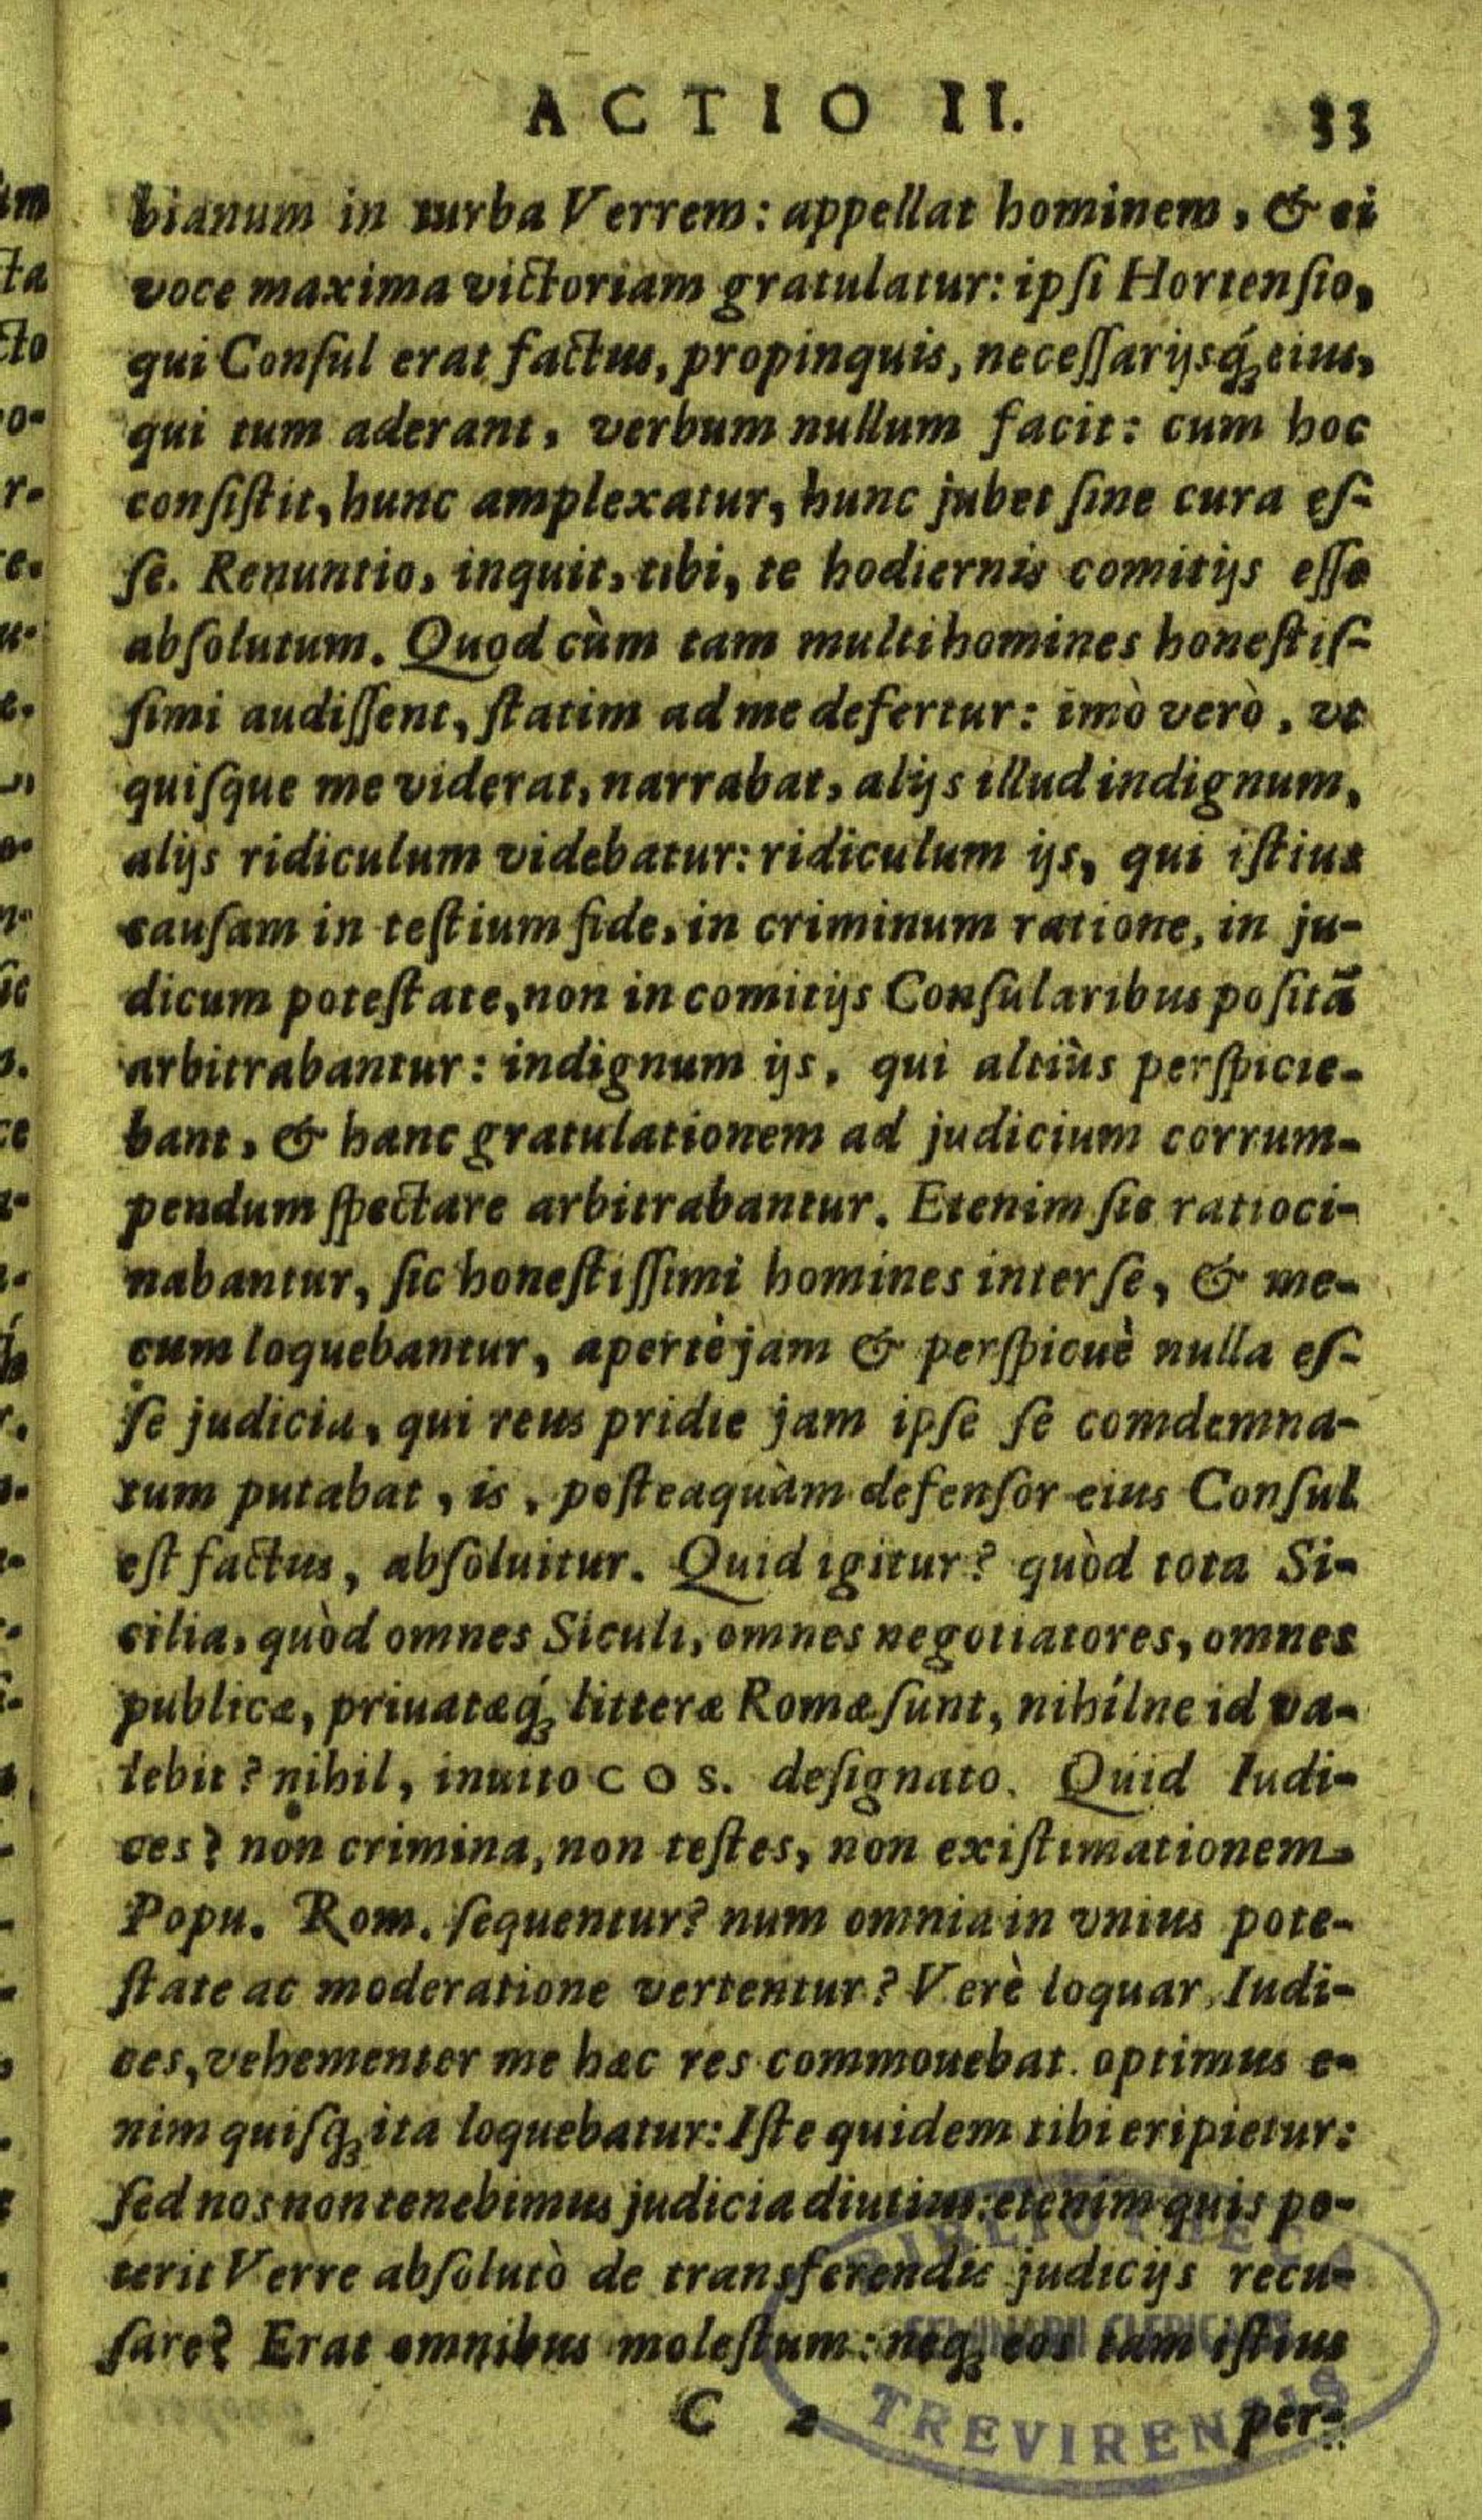 ACTIO II. 33
bianum in turba Verrem: appellat hominem, & ei
voce maxima victoriam gratulatur: ipſi Hortenſio,
qui Conſul erat factus, propinquis, neceſſarijsq́; eius,
qui tum aderant, verbum nullum facit: cum hoc
conſiſtit, hunc amplexatur, hunc jubet ſine cura eſ-
ſe. Renuntio, inquit, tibi, te hodiernis comitijs eſſe
abſolutum. Quod cùm tam multi homines honeſtiſ-
ſimi audiſſent, ſtatim ad me defertur: imò verò, vt
quiſque me viderat, narrabat, alijs illud indignum,
alijs ridiculum videbatur: ridiculum ijs, qui iſtius
cauſam in teſtium fide, in criminum ratione, in ju-
dicum poteſtate, non in comitijs Conſularibus poſitã
arbitrabantur: indignum ijs, qui altiùs perſpicie-
bant, & hanc gratulationem ad judicium corrum-
pendum ſpectare arbitrabantur. Etenim ſic ratioci-
nabantur, ſic honeſtiſſimi homines inter ſe, & me-
cum loquebantur, apertè jam & perſpicuè nulla eſ-
ſe judicia, qui reus pridie jam ipſe ſe comdemna-
tum putabat, is, poſteaquàm defenſor eius Conſul
eſt factus, abſoluitur. Quid igitur? quòd tota Si-
cilia, quòd omnes Siculi, omnes negotiatores, omnes
publicæ, priuatæq́; litteræ Romæ ſunt, nihílne id va-
lebit? nihil, inuito COS. deſignato. Quid Iudi-
ces? non crimina, non teſtes, non exiſtimationem
Popu. Rom. ſequentur? num omnia in vnius pote-
ſtate ac moderatione vertentur? Verè loquar, Iudi-
ces, vehementer me hæc res commouebat. optimus e-
nim quiſq; ita loquebatur: Iſte quidem tibi eripietur:
ſed nos non tenebimus judicia diutius: etenim quis po-
terit Verre abſolutò de transferendis judicijs recu-
ſare? Erat omnibus moleſtum: neq; eos tam iſtius
C 2 per-
BIBLIOTHECA
SEMINARII CLERICALIS
TREVIRENSIS